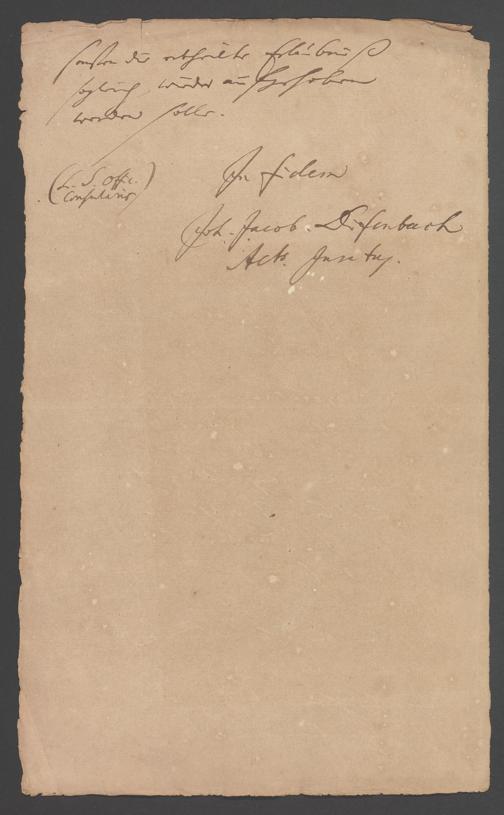 sonsten die ertheilte Erlaubnuß
sogleich wieder aufgehoben
werden solle.
(L. S. Offic.
Consularis)
In fidem
Joh. Jacob Difenbach
Act. Juratus.